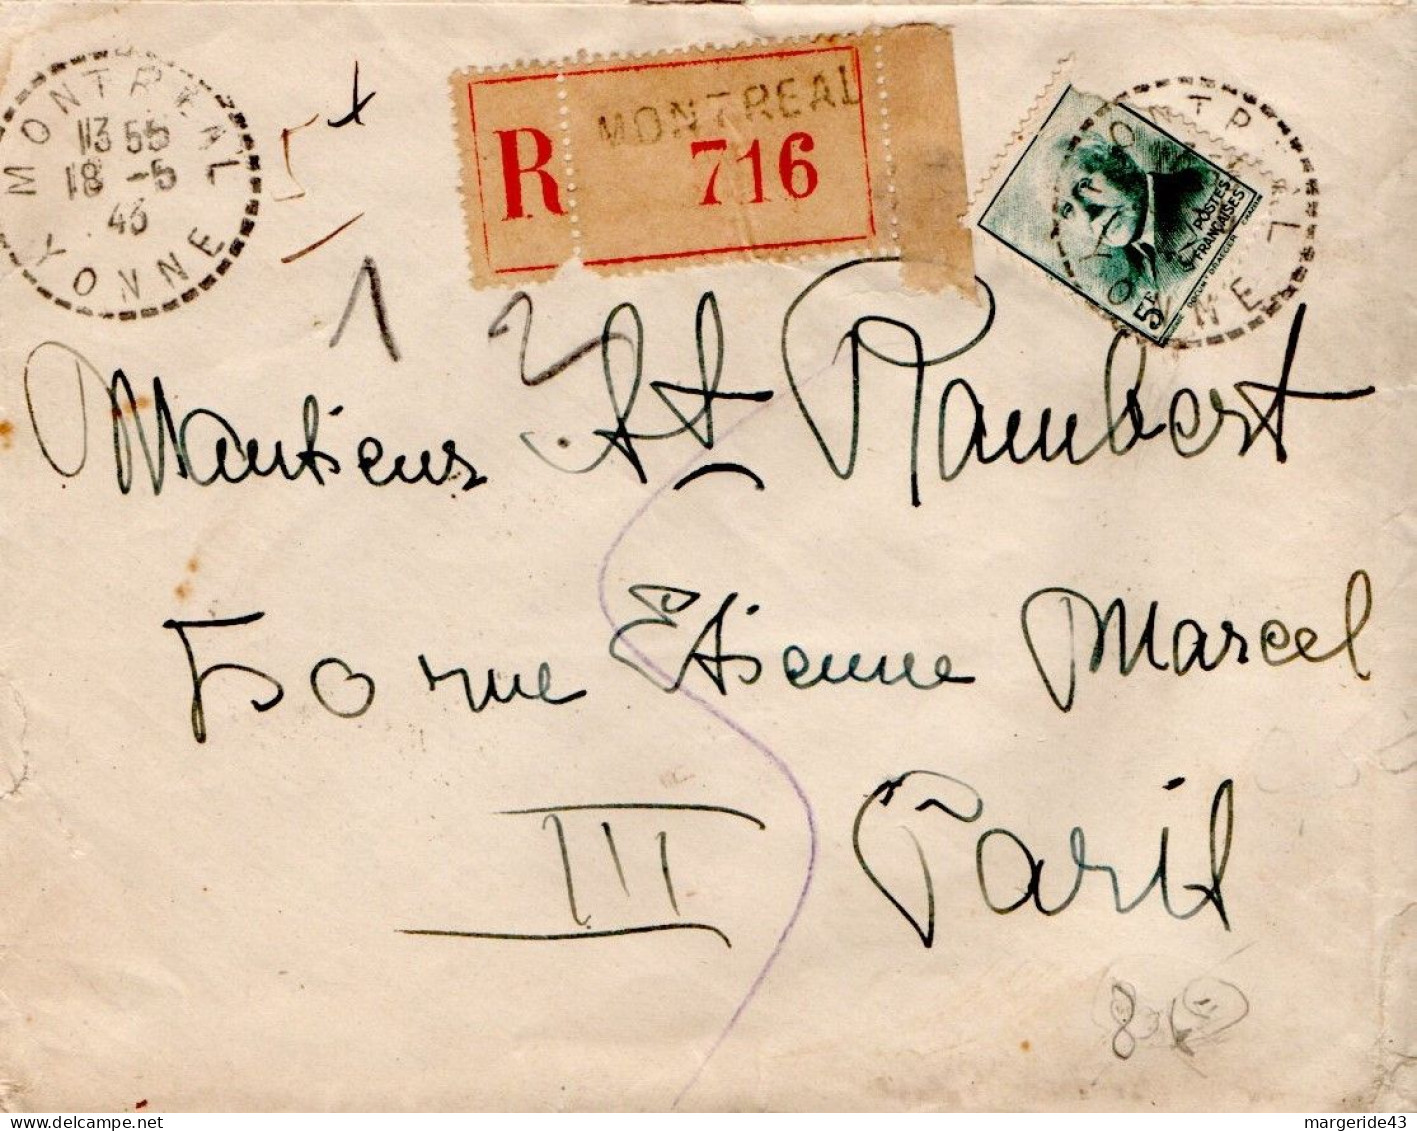 MONTREAL
13 55
18 -5
43
YONNE
5+
R
MONTREAL
716
5F
POSTES
FRANÇAISES
MONTREAL
YONNE
1 2
Monsieur St Rambert
50 rue Etienne Marcel
III Paris
margeride43